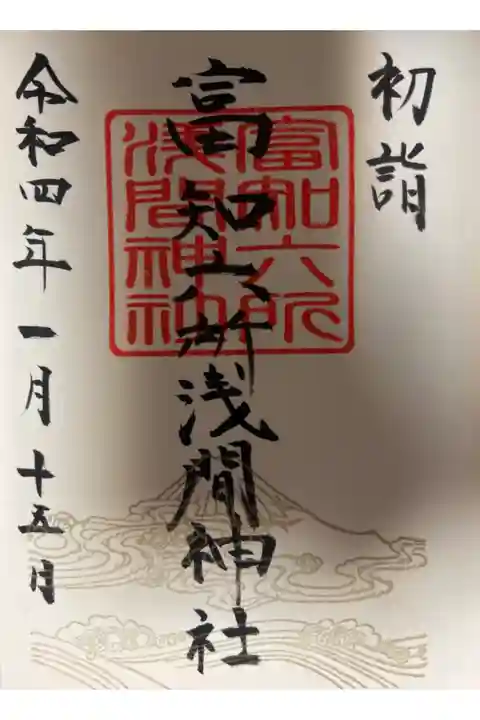 初詣
富知六所浅間神社
富知六所
浅間神社
令和四年一月十五日